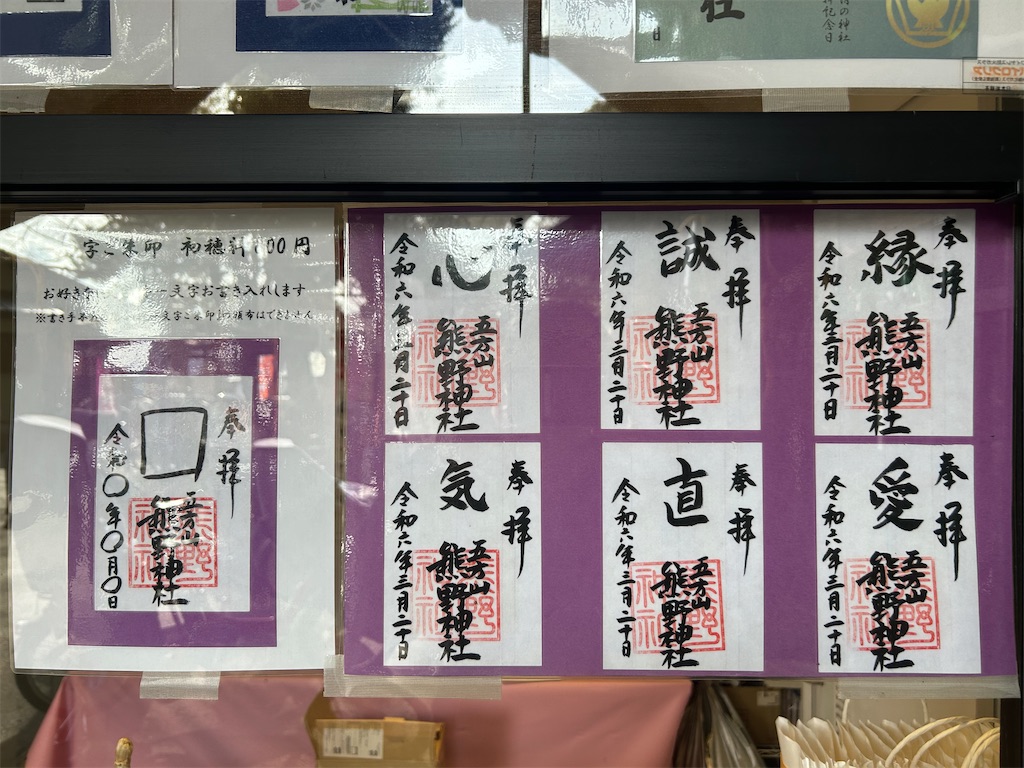 社
記念日
字ご朱印 初穂料
00円
お好き
一文字お書き入れします
※書き手
文字ご朱印
の頒布はできません
奉拝
五方山
熊野神社
令和〇年〇月〇日
奉拝
心
五方山
熊野神社
令和六年三月二十日
奉拝
誠
五方山
熊野神社
令和六年三月二十日
奉拝
縁
五方山
熊野神社
令和六年三月二十日
奉拝
気
五方山
熊野神社
令和六年三月二十日
奉拝
直
五方山
熊野神社
令和六年三月二十日
奉拝
愛
五方山
熊野神社
令和六年三月二十日